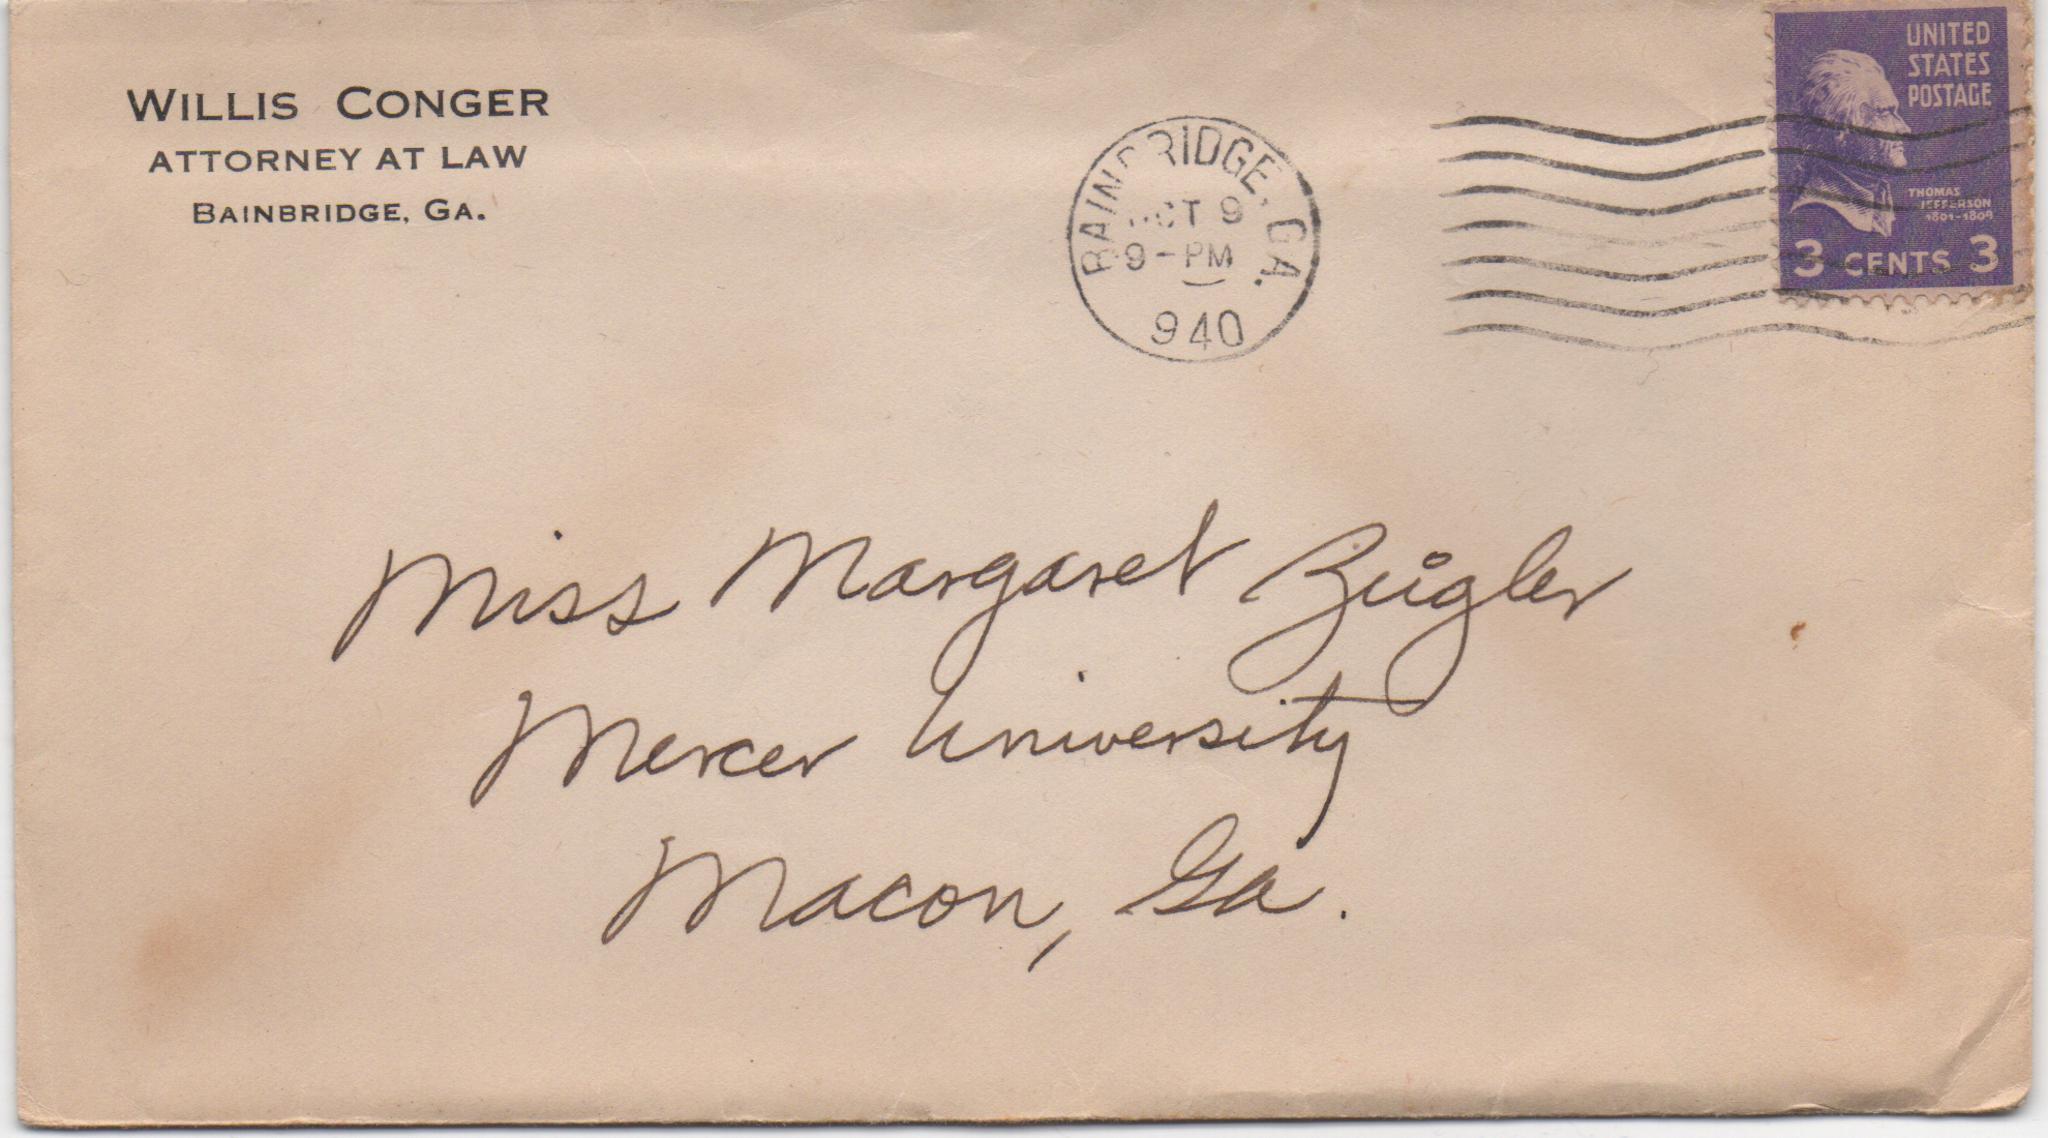 WILLIS CONGER
ATTORNEY AT LAW
BAINBRIDGE, GA.
BAINBRIDGE, GA.
OCT 9
9-PM
940
UNITED
STATES
POSTAGE
THOMAS
JEFFERSON
1801-1809
3 CENTS 3
Miss Margaret Zeigler
Mercer University
Macon, Ga.